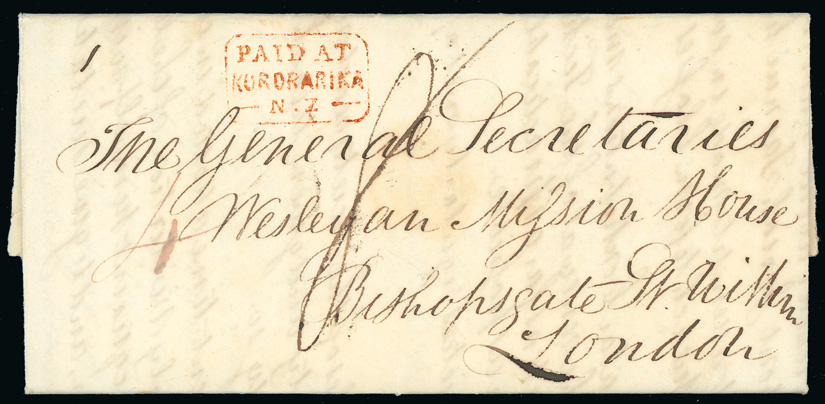 1
PAID AT
KORORARIKA
N.Z
The General Secretaries
4
Wesleyan Mission House
Bishopsgate St. Within
London